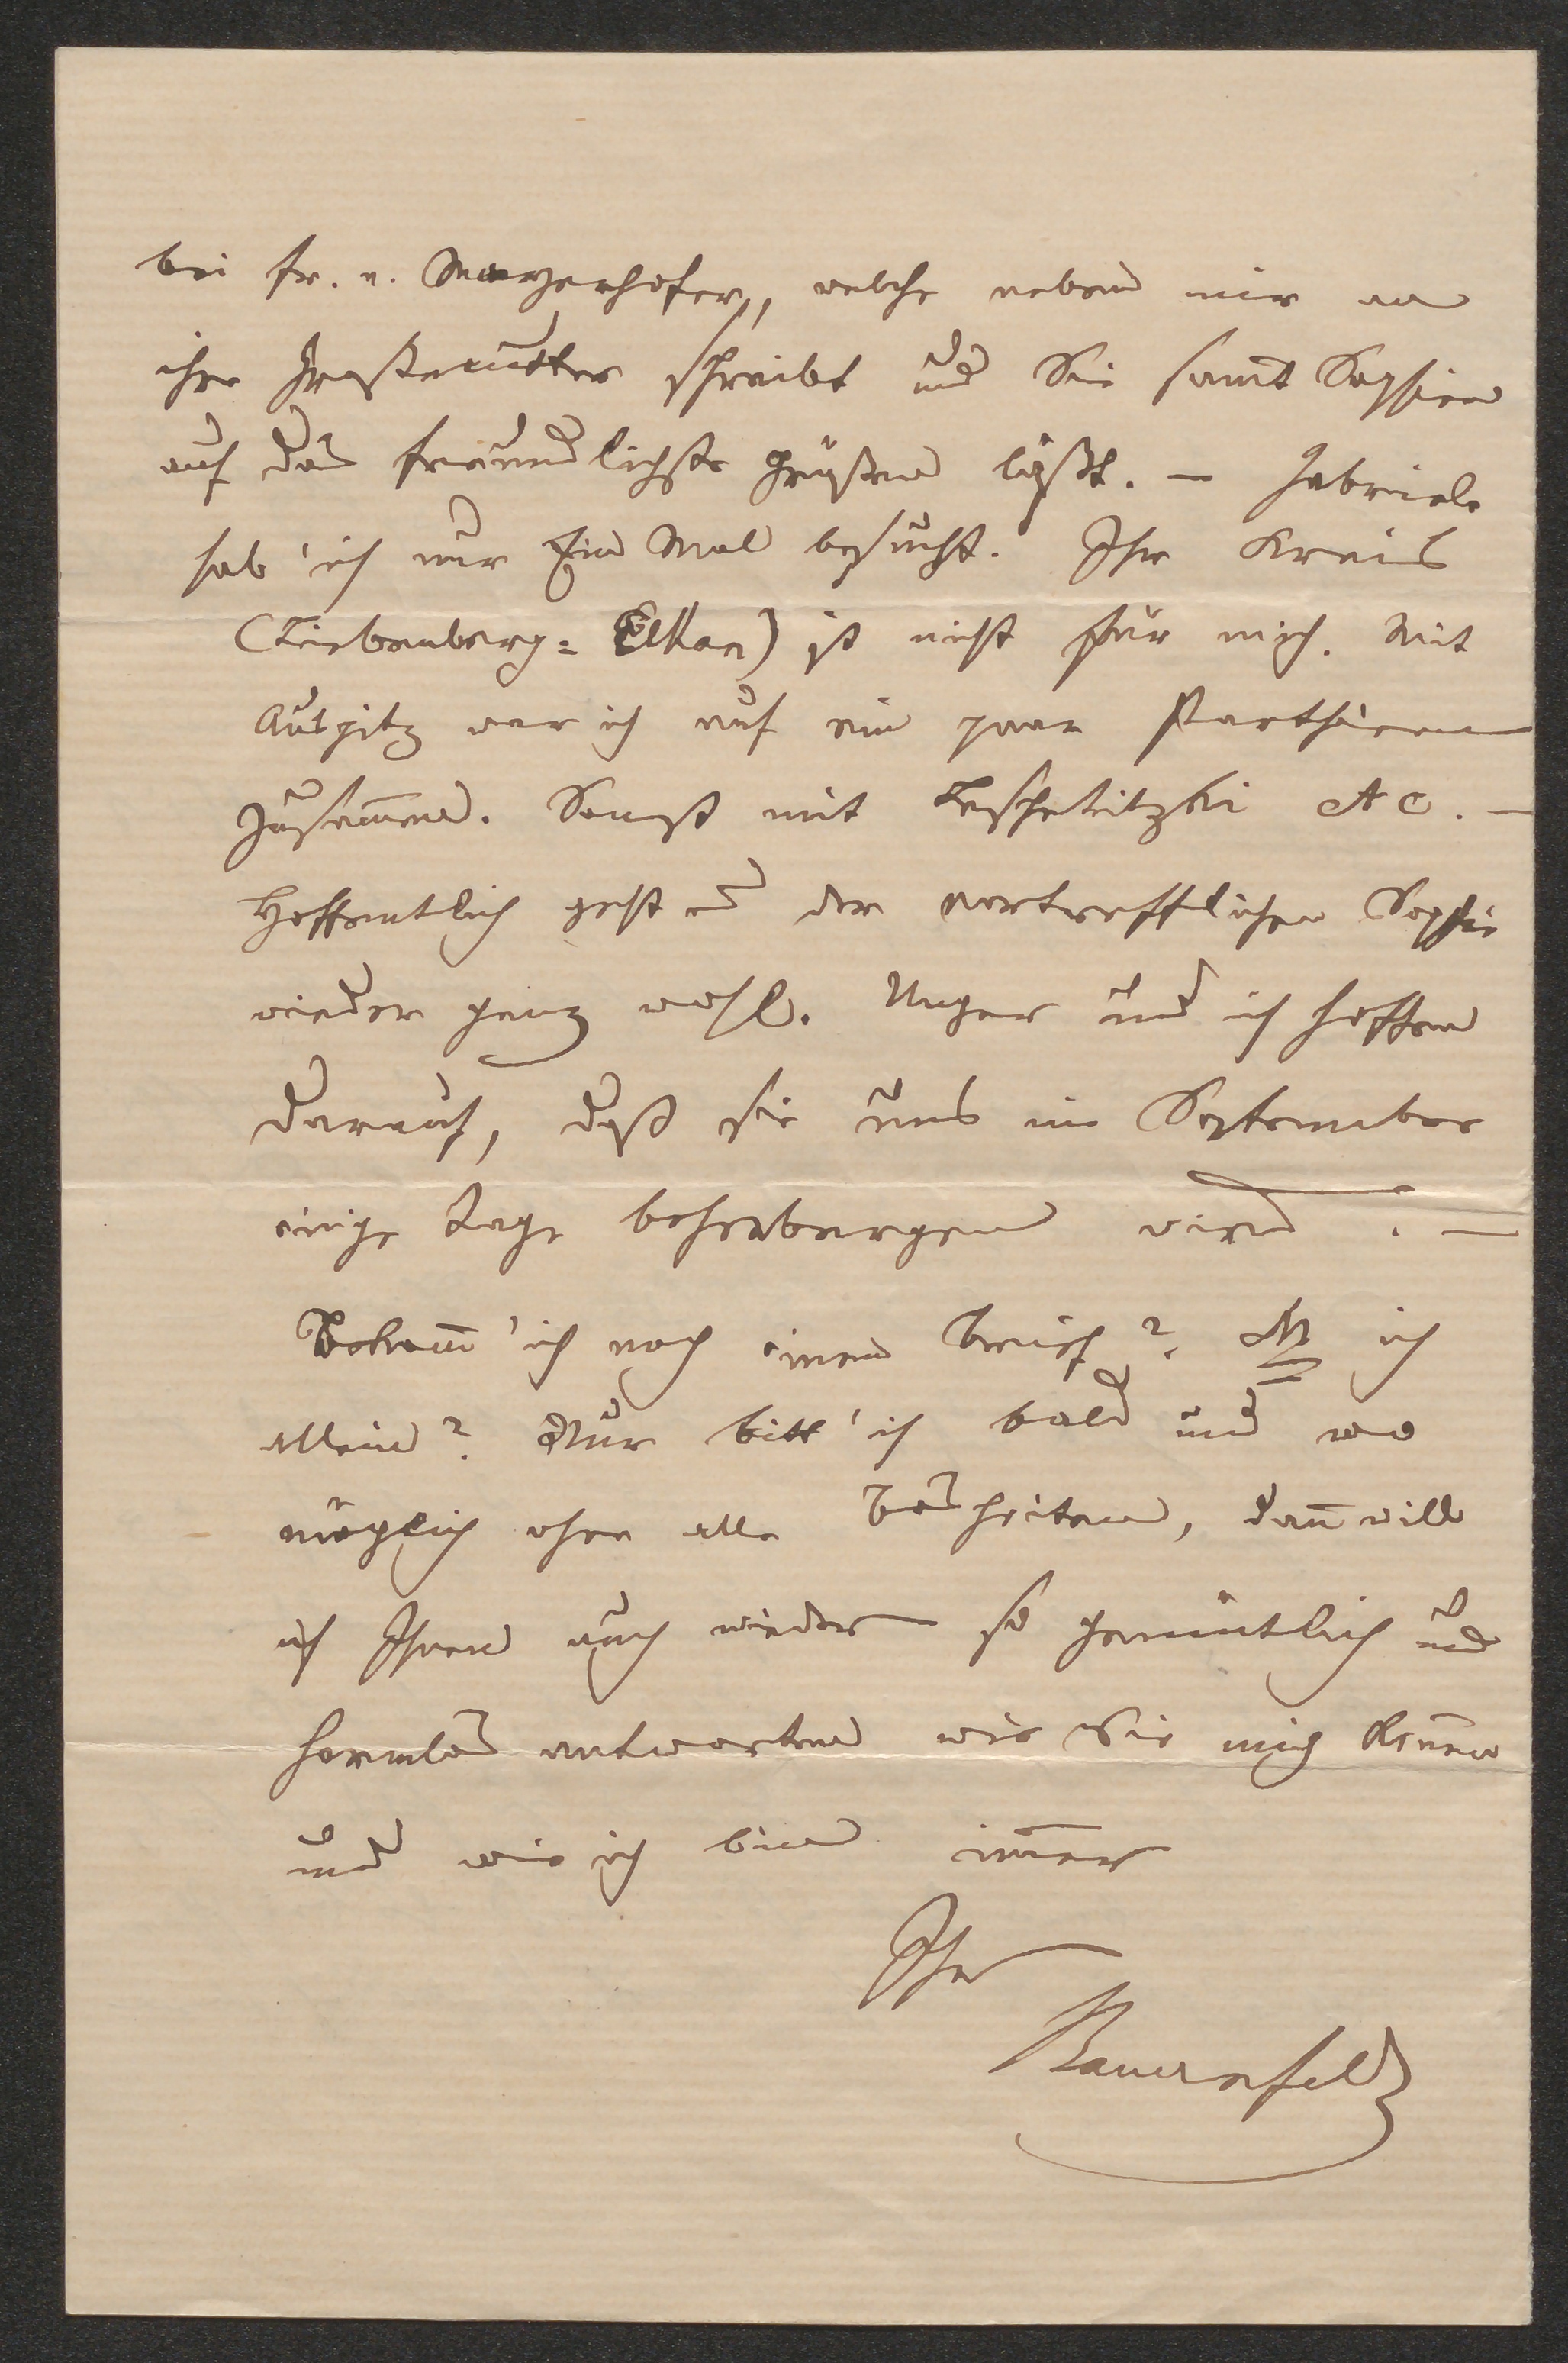 bei Fr. v. Mayerhofer, welche neben mir an
ihre Großmutter schreibt und Sie sam̄t Sophien
auf das freundlichste grüßen läßt. — Gabriele
hab' ich nur Ein Mal besucht. Ihr Kreis
(Liebenberg = Elkan) ist nicht für mich. Mit
Auspitz war ich auf ein paar Parthieen
zusam̄en. Sonst mit Leschetitzki etc. —
Hoffentlich geht es der vortrefflichen Sophie
wieder ganz wohl. Unger und ich hoffen
darauf, daß sie uns im September
einige Tage beherbergen wird. —
Bekom̄' ich noch einen Brief? ich
allein? Nur bitt' ich bald und wo
möglich ohne alle Bosheiten, dan̄ will
ich Ihnen auch wieder so gemütlich und
harmlos antworten wie Sie mich ken̄en
und wie ich bin im̄er
Ihr
Bauernfeld